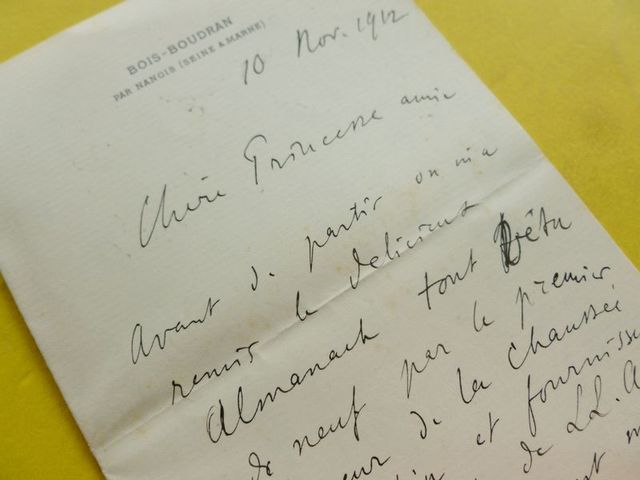 BOIS-BOUDRAN
PAR NANGIS (SEINE & MARNE)
10 Nov. 1912
Chère Princesse amie
Avant de partir on m'a
remis le délicieux
Almanach tout vêtu
de neuf par le premier
eur de la Chaussée
et fournisse
de LL. A